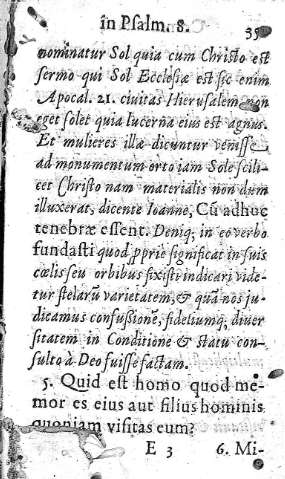 in Psalm. 8. 35
nominatur Sol quia cum Christo est
sermo qui Sol Ecclesiæ est sic enim
Apocal. 21. civitas Hierusalem non
eget solet quia lucerna eius est agnus.
Et mulieres illæ dicuntur venisse
ad monumentum orto iam Sole scili-
cet Christo nam materialis non dum
illuxerat, dicente Ioanne, Cũ adhuc
tenebræ essent. Deniq; in eo verbo
fundasti quod pprie significat in suis
cœlis seu orbibus fixisti indicari vide-
tur stelarũ varietatem, & quã nos ju-
dicamus confusionẽ, fidelium q; diver
sitatem in Conditione & statu con-
sulto à Deo fuisse factam.
5. Quid est homo quod me-
mor es eius aut filius hominis
quoniam visitas eum?
E 3 6. Mi-